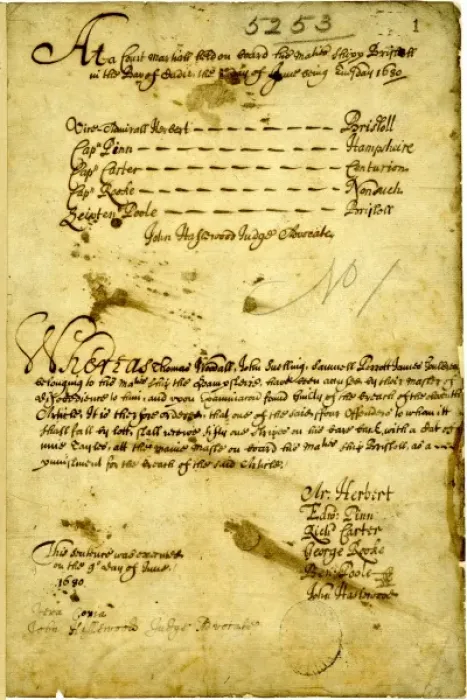 5253
1
At a Court Martiall held on board the Ma^ties Shipp Bristoll
in the Bay of the day of June being 1680
Vice Admirall Herbert — — — — — — — Bristoll
Cap^t Pinn — — — — — — — Hampshire
Cap^t Carter — — — — — — — Centurion
Cap^t Rooke — — — — — — — Nonsuch
Poole — — — — — — — Bristoll
John Haslewood Judge Advocate
No 1
Whereas Thomas Woodall, John Snelling, Samuell Perrott James
belonging to his Ma^ties Ship the Hampshire, have been accused by their Master of
disobedience to him, and upon Examination found Guilty of the breach of the
Article. It is therefore ordered, that one of the said ffour Offenders to whom itt
shall fall by lott, shall receive fifty one Stripes on his bare back, with a Catt of
nine Tayles, att the maine Maste on board his Ma^ties Ship Bristoll, as a
punishment for the breach of the said Article.
Ar. Herbert
Edw: Pinn
Rich: Carter
George Rooke
Ben: Poole
John Haslewood
This was executed
on the 9^th day of June
1680
Vera Copia
John Haslewood Judge Advocate